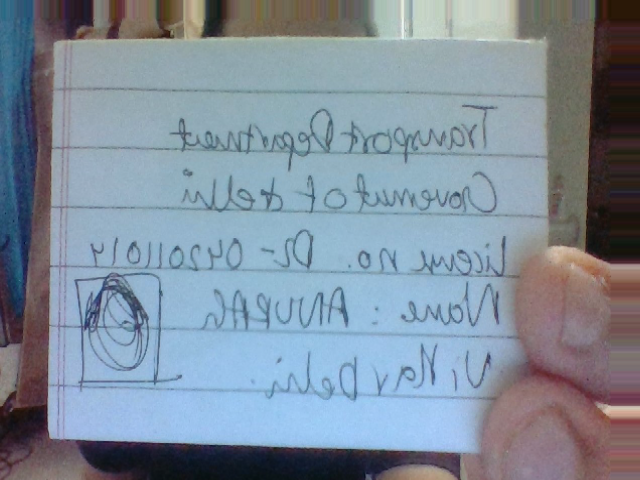 Transport Department
Goverment of delhi
License no. DL-042011014
Name : ANURAG
Delhi